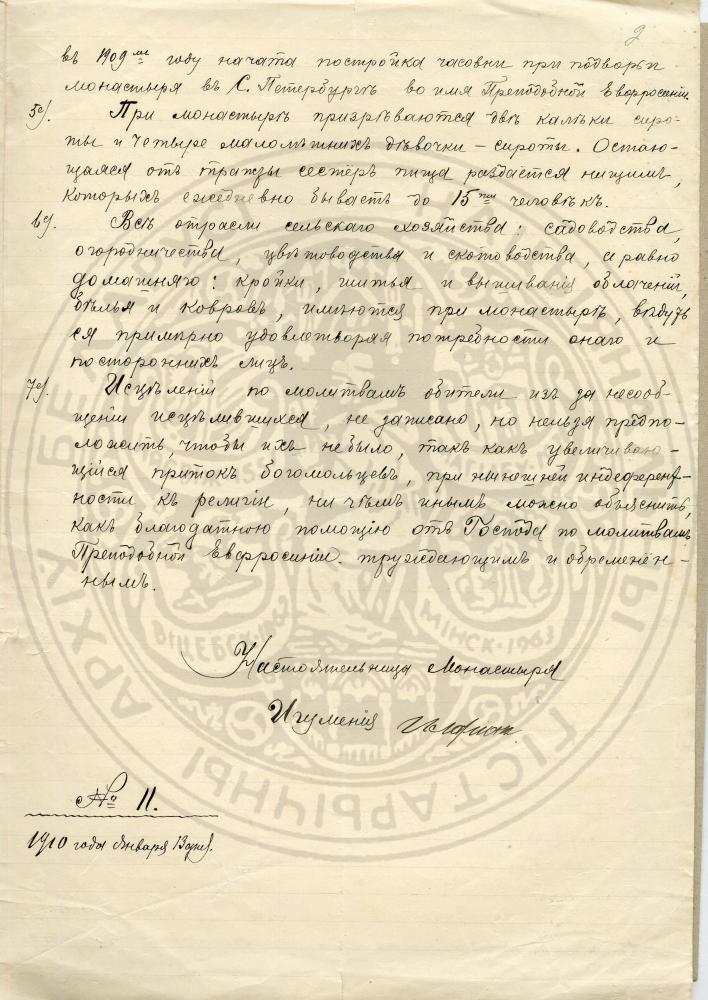 2
въ 1909 мъ году начата постройка часовни при подворьи
монастыря въ С. Петербургѣ во имя Преподобной Евфросиніи.
5е/. При монастырѣ призрѣваются двѣ калѣки сиро-
ты и четыре малолѣтнихъ дѣвочки – сироты. Остаю-
щаяся отъ трапезы сестеръ пища раздается нищимъ,
которыхъ ежедневно бываетъ до 15 ти человѣкъ.
6е/. Всѣ отрасли сельскаго хозяйства: садоводства,
огородничества, цвѣтоводства и скотоводства, а равно
домашняго: кройки, шитья и вышиванія облаченій,
бѣлья и ковровъ, имѣются при монастырѣ, ведут-
ся примѣрно удовлетворяя потребности онаго и
постороннихъ лицъ.
7е/. Исцѣленій по молитвамъ обители изъ за несооб-
щеніи исцѣлившихся, не записано, но нельзя предпо-
ложить, чтобы ихъ не было, такъ какъ увеличиваю-
щійся притокъ богомольцевъ, при нынѣшней индеферент-
ности къ религіи, ни чѣмъ инымъ можно объяснить,
какъ благодатною помощію отъ Господа по молитвамъ
Преподобной Евфросиніи. труждающимъ и обременен-
нымъ.
Настоятельница Монастыря
Игуменія
№ 11.
1910 года Января 13 дня.
БЕЛ
АРХІЎ
ГІСТАРЫЧНЫ
ВІЦЕБСК
МІНСК·1963